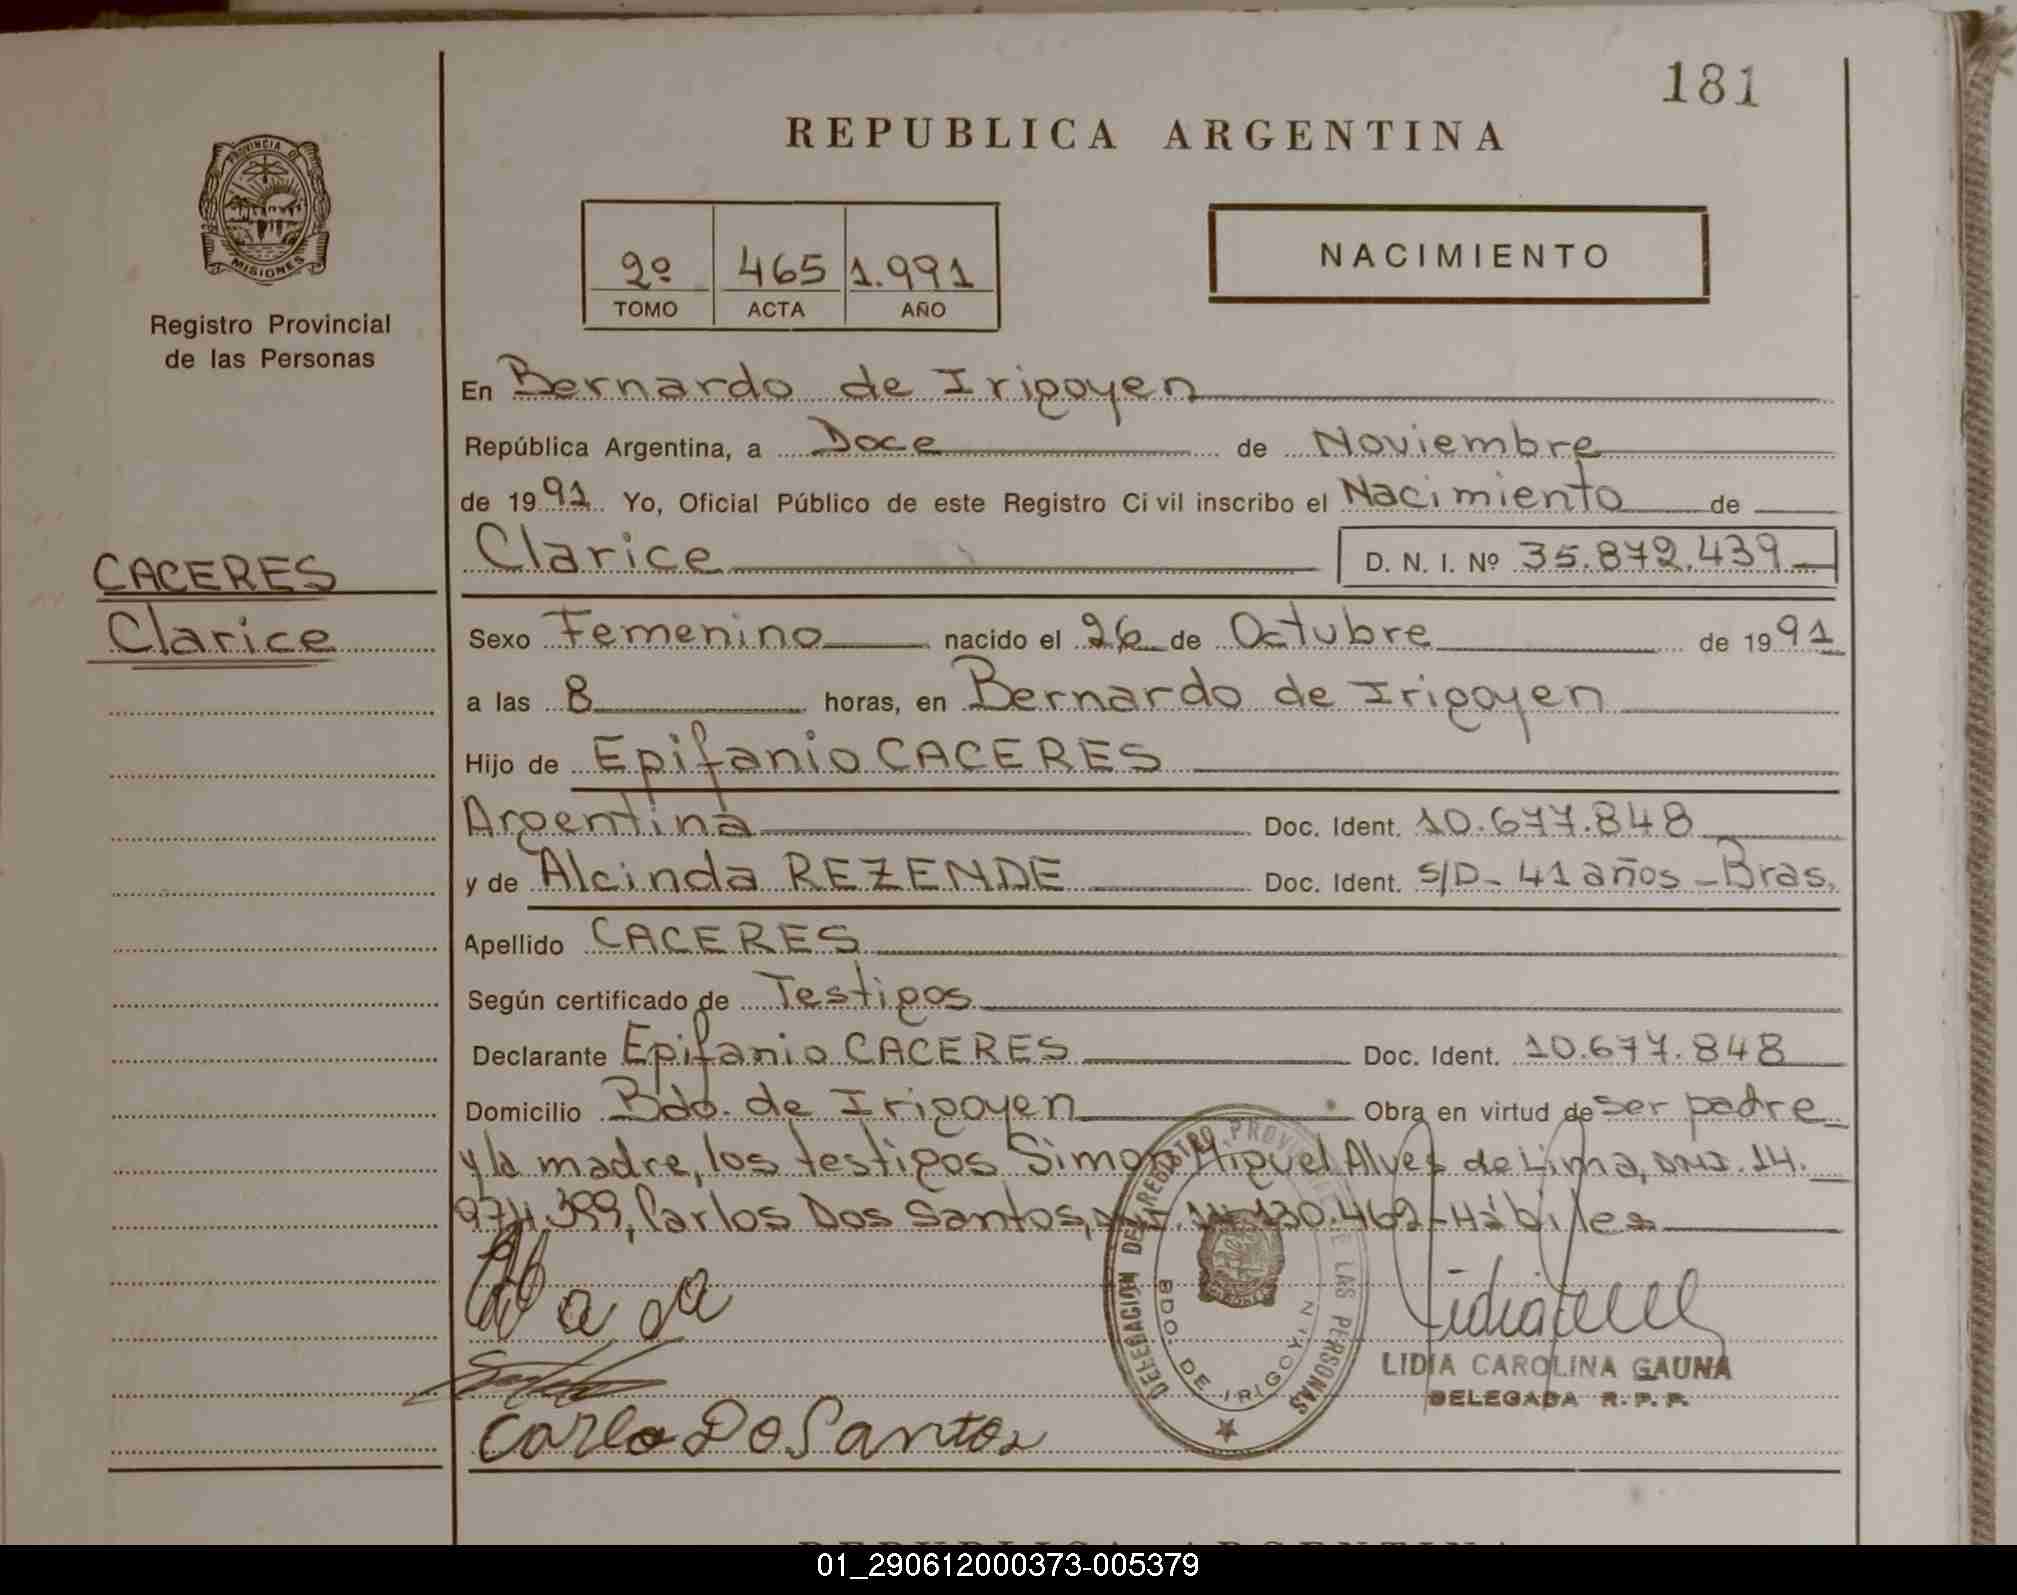 181
REPUBLICA ARGENTINA
PROVINCIA DE
MISIONES
Registro Provincial
de las Personas
2º 465 1.991
TOMO ACTA AÑO
NACIMIENTO
En Bernardo de Irigoyen
República Argentina, a Doce de Noviembre
de 1991 Yo, Oficial Público de este Registro Civil inscribo el Nacimiento de
Clarice D. N. I. Nº 35.872.439
CACERES
Clarice
Sexo Femenino nacido el 26 de Octubre de 1991
a las 8 horas, en Bernardo de Irigoyen
Hijo de Epifanio CACERES
Argentina Doc. Ident. 10.677.848
y de Alcinda REZENDE Doc. Ident. S/D- 41 años - Bras.
Apellido CACERES
Según certificado de Testigos
Declarante Epifanio CACERES Doc. Ident. 10.677.848
Domicilio Bdo. de Irigoyen Obra en virtud de ser padre
y la madre, los testigos Simon Miguel Alves de Lima, DNI. 14.
974.399, Carlos Dos Santos, 130.462-Hábiles
DELEGACION DEL REGISTRO PROVINCIAL DE LAS PERSONAS
BDO. DE IRIGOYEN
LIDIA CAROLINA GAUNA
DELEGADA R. P. P.
Carlo Do Santos
REPUBLICA ARGENTINA
01_290612000373-005379